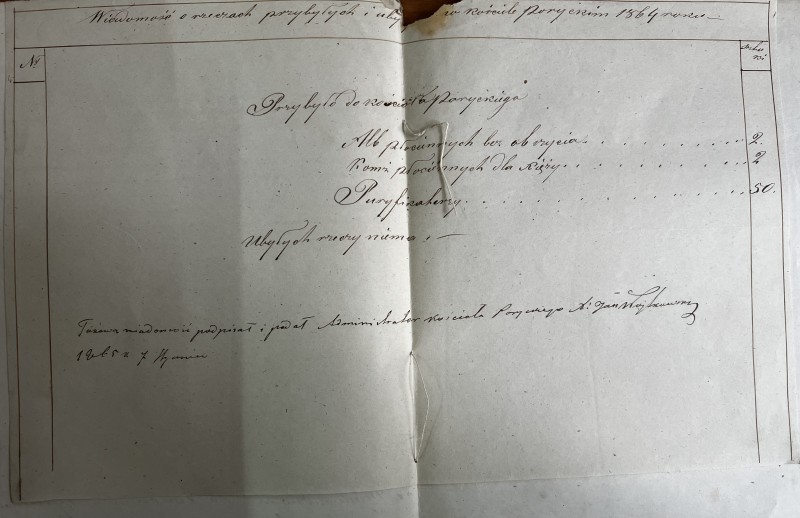 Wiadomość o rzeczach przybyłych i uby w kościele Poryckim 1864 roku
№
Przybyło do kościoła Poryckiego
Alb płóciennych bez obszycia 2.
Komż płóciennych dla Xięży 2
Puryfikaterzy 50.
Ubyłych rzeczy niema.
wiadomość podpisał i podał Administrator kościoła Poryckiego X. Jan
1865 r. 7